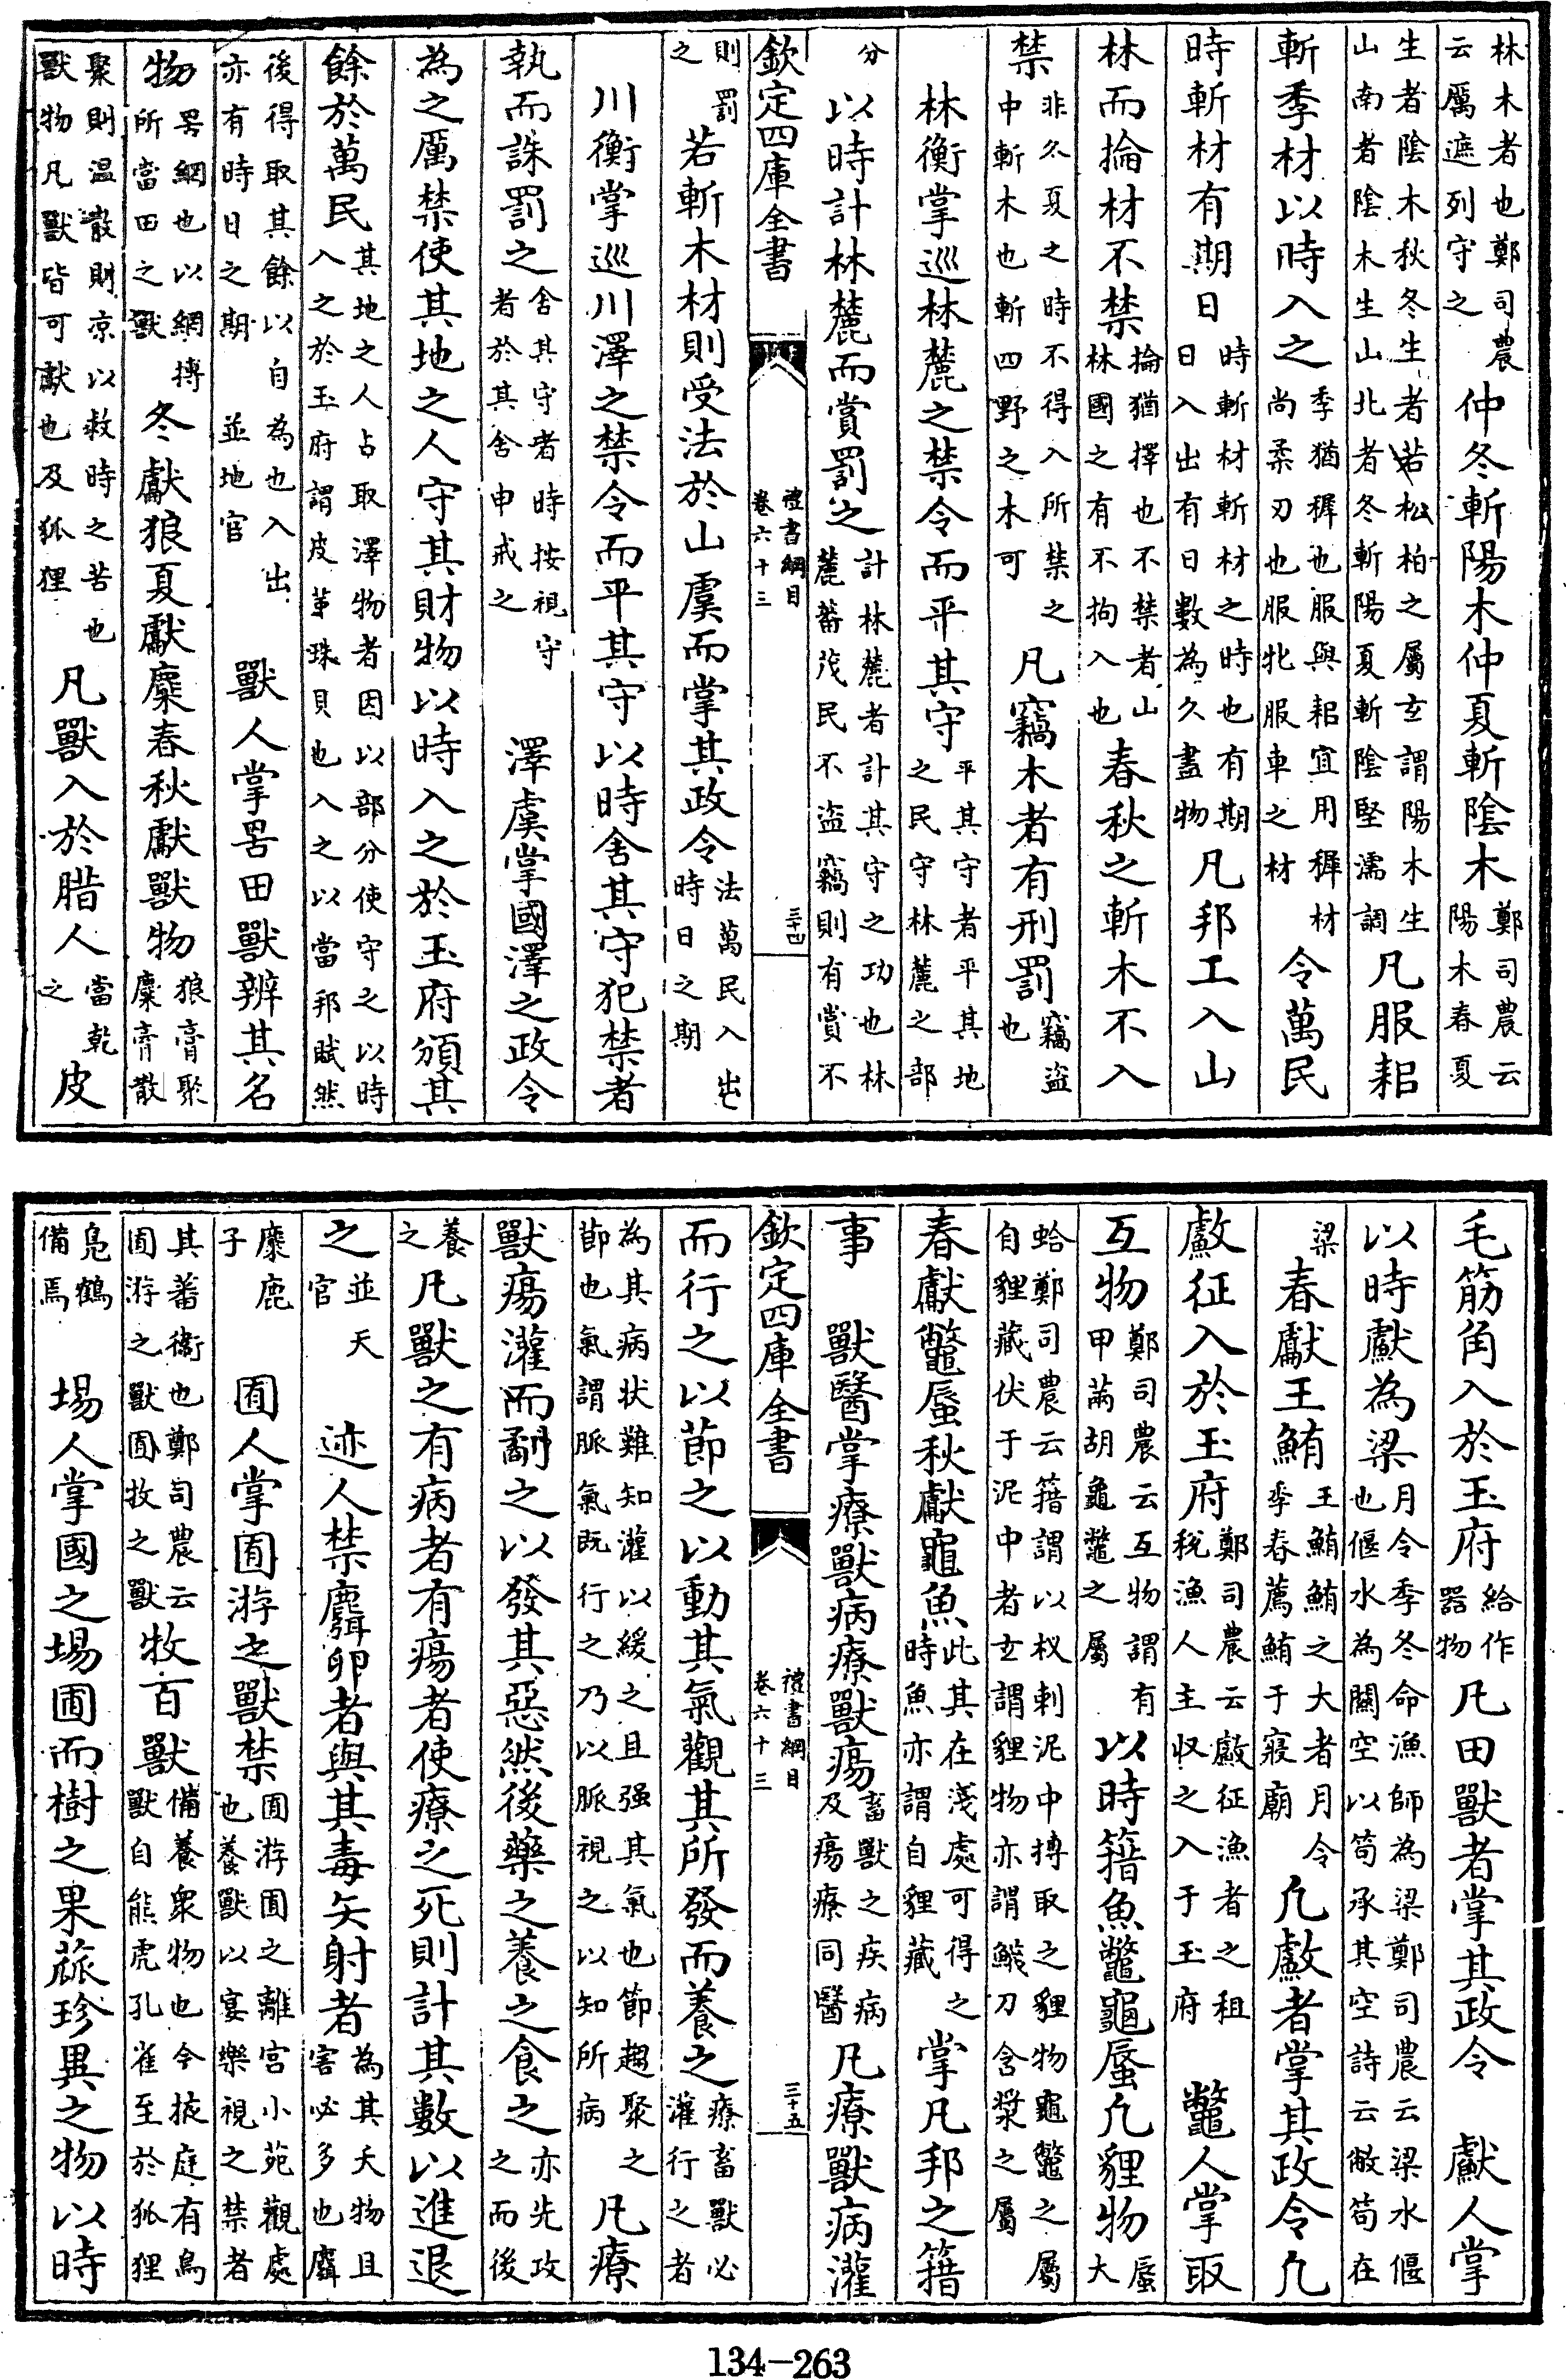 林木者也鄭司農云厲遮列守之　仲冬斬陽木仲夏斬陰木鄭司農云陽木春夏
生者陰木秋冬生者若松柏之屬玄謂陽木生山南者陰木生山北者冬斬陽夏斬陰堅濡調凡服耜
斬季材以時入之季猶穉也服與耜宜用穉材尚柔刃也服牝服車之材　令萬民
時斬材有期日時斬材斬材之時也有期日入出有日數為久盡物凡邦工入山
林而掄材不禁掄猶擇也不禁者山林國之有不拘入也春秋之斬木不入
禁非冬夏之時不得入所禁之中斬木也斬四野之木可　凡竊木者有刑罰竊盜也
林衡掌巡林麓之禁令而平其守平其守者平其地之民守林麓之部
分　以時計林麓而賞罰之計林麓者計其守之功也林麓蕃茂民不盜竊則有賞不
欽定四庫全書　禮書綱目卷六十三　三十四
則罰之　若斬木材則受法於山虞而掌其政令法萬民入出時日之期
川衡掌巡川澤之禁令而平其守以時舍其守犯禁者
執而誅罰之舍其守者時按視守者於其舍申戒之　澤虞掌國澤之政令
為之厲禁使其地之人守其財物以時入之於玉府頒其
餘於萬民其地之人占取澤物者因以部分使守之以時入之於玉府謂皮革珠貝也入之以當邦賦然
後得取其餘以自為也入出亦有時日之期　並地官　獸人掌罟田獸辨其名
物罟網也以網搏所當田之獸冬獻狼夏獻麋春秋獻獸物狼膏聚麋膏散
聚則温散則凉以救時之苦也獸物凡獸皆可獻也及狐狸　凡獸入於腊人當乾之皮
毛筋角入於玉府給作器物凡田獸者掌其政令　䱷人掌
以時䱷為梁月令季冬命漁師為梁鄭司農云梁水偃也偃水為關空以笱承其空詩云敝笱在
梁　春獻王鮪王鮪鮪之大者月令季春薦鮪于寢廟　凡䱷者掌其政令凡
䱷征入於玉府鄭司農云䱷征漁者之租稅漁人主収之入于玉府　鼈人掌取
互物鄭司農云互物謂有甲䓣胡龜鼈之屬　以時籍魚鼈龜蜃凡貍物蜃大
蛤鄭司農云籍謂以杈刺泥中搏取之貍物龜鼈之屬自貍藏伏于泥中者玄謂貍物亦謂鱴刀含漿之屬
春獻鼈蜃秋獻龜魚此其在淺處可得之時魚亦謂自貍藏　掌凡邦之籍
事　獸醫掌療獸病療獸瘍畜獸之疾病及瘍療同醫　凡療獸病灌
欽定四庫全書　禮書綱目卷六十三　三十五
而行之以節之以動其氣觀其所發而養之療畜獸必灌行之者
為其病状難知灌以緩之且强其氣也節趨聚之節也氣謂脈氣既行之乃以脈視之以知所病　凡療
獸瘍灌而劀之以發其惡然後藥之養之食之亦先攻之而後
養之凡獸之有病者有瘍者使療之死則計其數以進退
之並天官　迹人禁麛卵者與其毒矢射者為其夭物且害必多也麛
麋鹿子　囿人掌囿游之獸禁囿游囿之離宮小苑觀處也養獸以宴樂視之禁者
其蕃衞也鄭司農云囿游之獸囿牧之獸牧百獸備養衆物也今掖庭有鳥獸自熊虎孔雀至於狐狸
鳧鶴備焉　場人掌國之場圃而樹之果蓏珍異之物以時
134-263